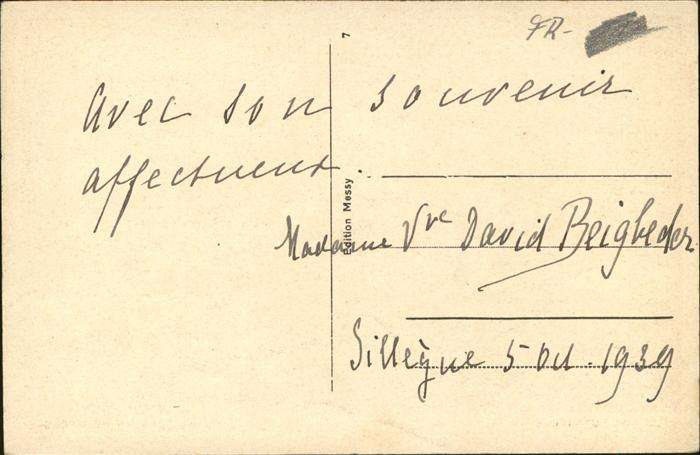 7
FR-
Avec son souvenir
affectueux.
Edition Messy
Madame Vve David Beigbeder
Sillègue 5 Oct. 1939